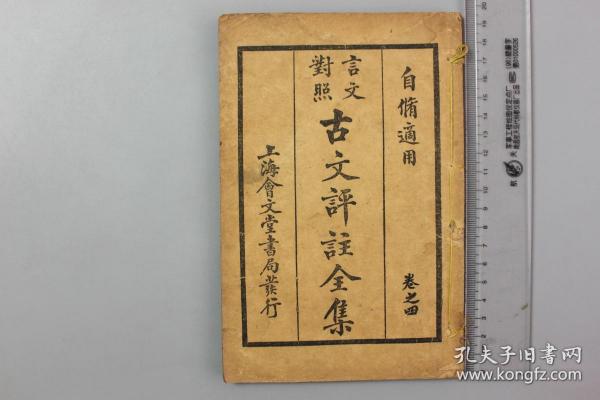 自脩適用
卷之四
言文
對照
古文評註全集
上海會文堂書局發行
孔夫子旧书网
www.kongfz.com